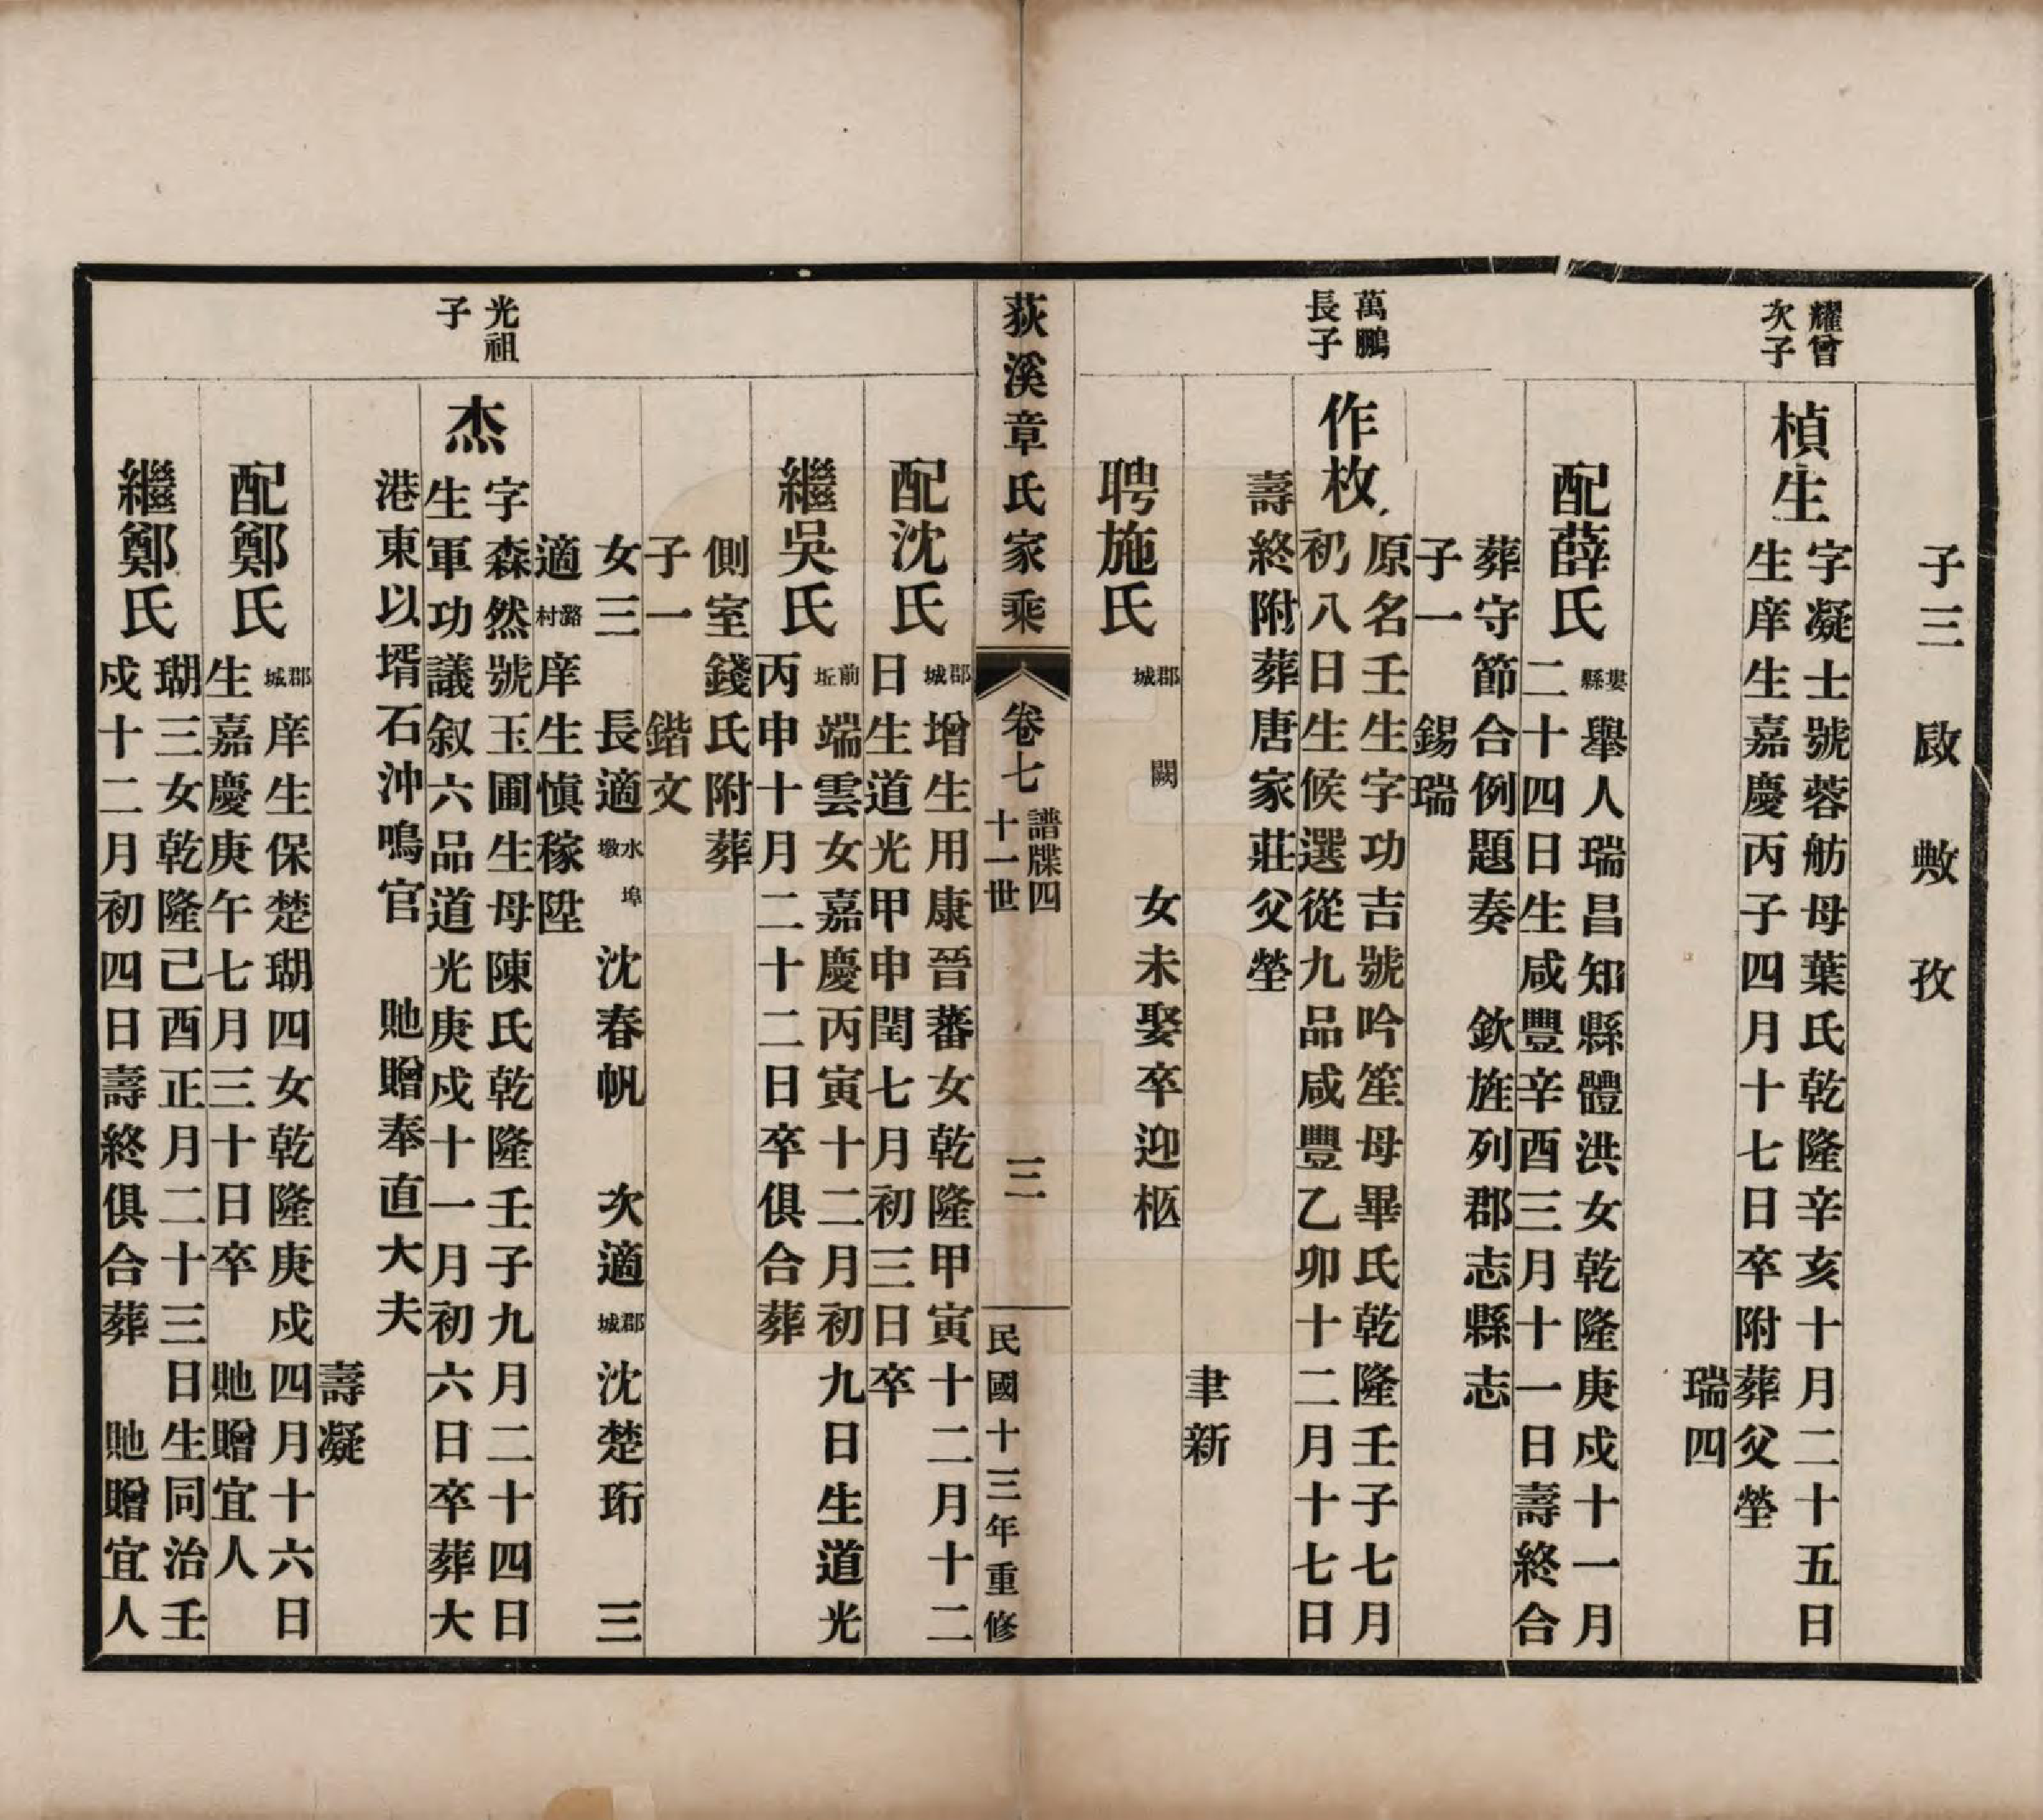 子三　啟　敷　孜
耀曾
次子
楨生
字凝士號蓉舫母葉氏乾隆辛亥十月二十五日
生庠生嘉慶丙子四月十七日卒附葬父塋
瑞四
配薛氏
婁縣
舉人瑞昌知縣體洪女乾隆庚戍十一月
二十四日生咸豐辛酉三月十一日壽終合
葬守節合例題奏　欽旌列郡志縣志
子一　錫瑞
萬鵬
長子
作枚
原名壬生字功吉號吟笙母畢氏乾隆壬子七月
初八日生候選從九品咸豐乙卯十二月十七日
壽終附葬唐家莊父塋
聿新
聘施氏
郡城
闕
女未娶卒迎柩
荻溪章氏家乘
卷七
譜牒四
十一世
三
民國十三年重修
配沈氏
郡城
增生用康晉蕃女乾隆甲寅十二月十二
日生道光甲申閏七月初三日卒
繼吳氏
前坵
端雲女嘉慶丙寅十二月初九日生道光
丙申十月二十二日卒俱合葬
側室錢氏附葬
子一　鍇文
女三　長適水墩埠沈春帆　次適郡城沈楚珩　三
適潞村庠生慎稼陞
光祖
子
杰
字森然號玉圃生母陳氏乾隆壬子九月二十四日
生軍功議叙六品道光庚戍十一月初六日卒葬大
港東以壻石沖鳴官　貤贈奉直大夫
壽凝
配鄭氏
郡城
庠生保楚瑚四女乾隆庚戍四月十六日
生嘉慶庚午七月三十日卒　貤贈宜人
繼鄭氏
瑚三女乾隆己酉正月二十三日生同治壬
戍十二月初四日壽終俱合葬　貤贈宜人